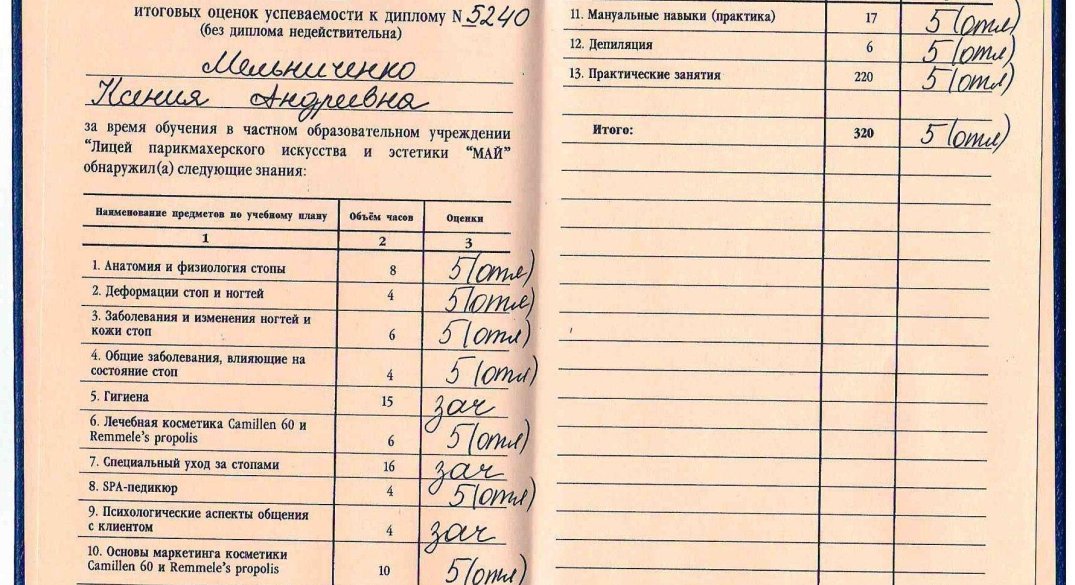 итоговых оценок успеваемости к диплому N 5240
(без диплома недействительна)
Мельниченко
Ксения Андреевна
за время обучения в частном образовательном учреждении
“Лицей парикмахерского искусства и эстетики “МАЙ”
обнаружил(а) следующие знания:
Наименование предметов по учебному плану Объём часов Оценки
1 2 3
1. Анатомия и физиология стопы 8 5 (отл)
2. Деформации стоп и ногтей 4 5 (отл)
3. Заболевания и изменения ногтей и
кожи стоп 6 5 (отл)
4. Общие заболевания, влияющие на
состояние стоп 4 5 (отл)
5. Гигиена 15 зач
6. Лечебная косметика Camillen 60 и
Remmele's propolis 6 5 (отл)
7. Специальный уход за стопами 16 зач
8. SPA-педикюр 4 5 (отл)
9. Психологические аспекты общения
с клиентом 4 зач
10. Основы маркетинга косметики
Camillen 60 и Remmele's propolis 10 5 (отл)
11. Мануальные навыки (практика) 17 5 (отл)
12. Депиляция 6 5 (отл)
13. Практические занятия 220 5 (отл)
Итого: 320 5 (отл)